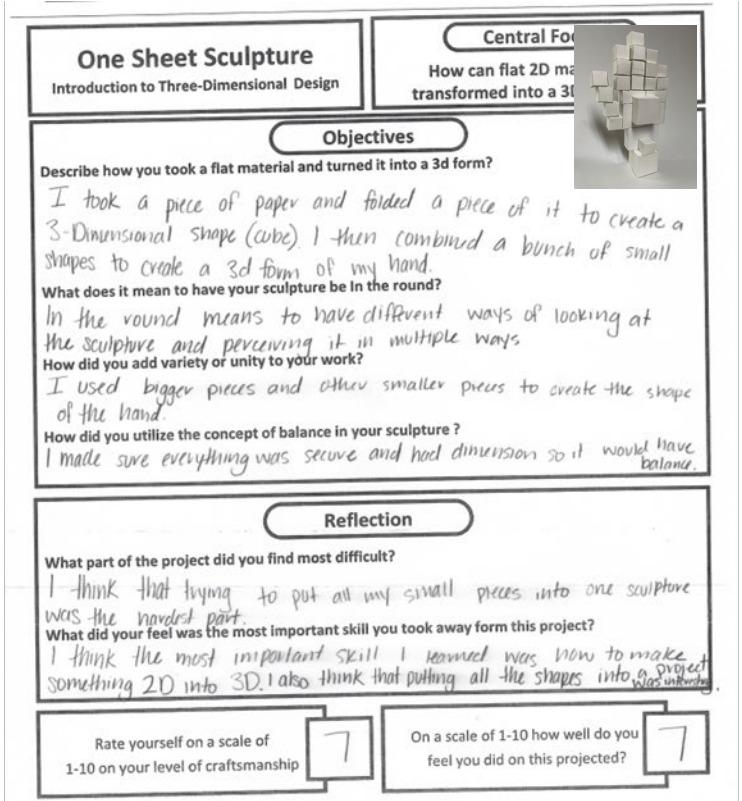 One Sheet Sculpture
Introduction to Three-Dimensional Design
Central
How can flat 2D
transformed into a
Objectives
Describe how you took a flat material and turned it into a 3d form?
I took a piece of paper and folded a piece of it to create a
3-Dimensional shape (cube). I then combined a bunch of small
shapes to create a 3d form of my hand.
What does it mean to have your sculpture be In the round?
In the round means to have different ways of looking at
the sculpture and perceiving it in multiple ways
How did you add variety or unity to your work?
I used bigger pieces and other smaller pieces to create the shape
of the hand.
How did you utilize the concept of balance in your sculpture ?
I made sure everything was secure and had dimension so it would have
balance.
Reflection
What part of the project did you find most difficult?
I think that trying to put all my small pieces into one sculpture
was the hardest part.
What did your feel was the most important skill you took away form this project?
I think the most important skill I learned was how to make
something 2D into 3D. I also think that putting all the shapes into a project
was interesting.
Rate yourself on a scale of
1-10 on your level of craftsmanship
7
On a scale of 1-10 how well do you
feel you did on this projected?
7